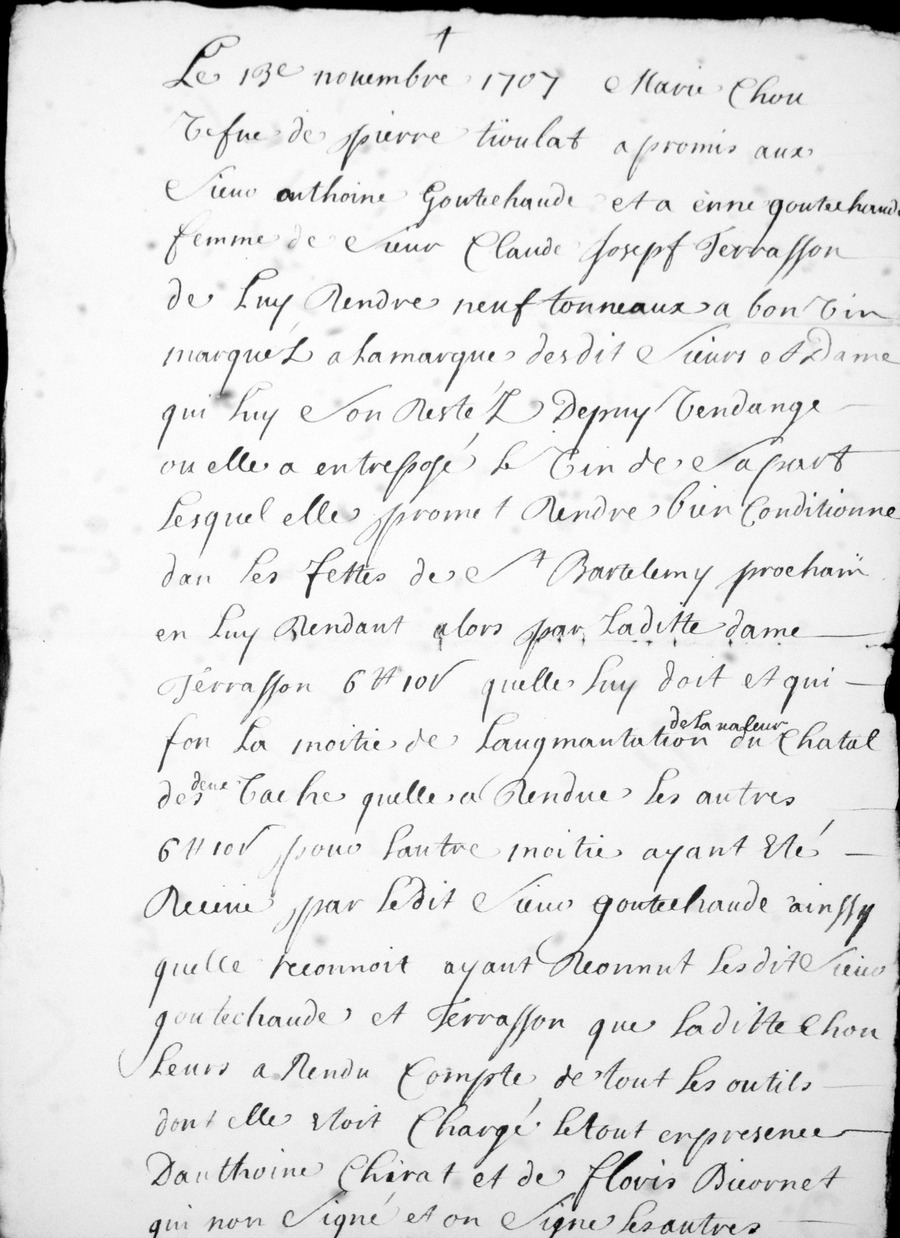 Le 13e nouembre 1707 Marie Chou
Vefue de pierre tioulat a promis aux
Sieur anthoine Goutechaude et a enne goutechaude
femme de Sieur Claude Josepf Terrasson
de Luy Rendre neuf tonneaux a bon Vin
marquéz a la marque desdit Sieurs et Dame
qui Luy Son Restéz Depuy Vendange
ou elle a entreposé le Vin de Sa part
Lesquel elle promet Rendre bien Conditionne
dan Les fettes de St Bartelemy prochain
en Luy Rendant alors par Laditte dame
Terrasson 6 ₶ 10s quelle Luy doit et qui
fon La moitie de Laugmantation de La valeur du Chatal
des deux Vache quelle a Rendue Les autres
6 ₶ 10s pour Lautre moitie ayant Eté
Receue par Ledit Sieur goutechaude ainssy
quelle reconnoit ayant Reonnut Lesdit Sieur
goutechaude et Terrasson que Laditte Chou
Leurs a Rendu Compte de tout Les outils
dont elle Etoit Chargé Le tout en presence
Danthoine Chirat et de floris Bicornet
qui non Signé et on Signe Les autres